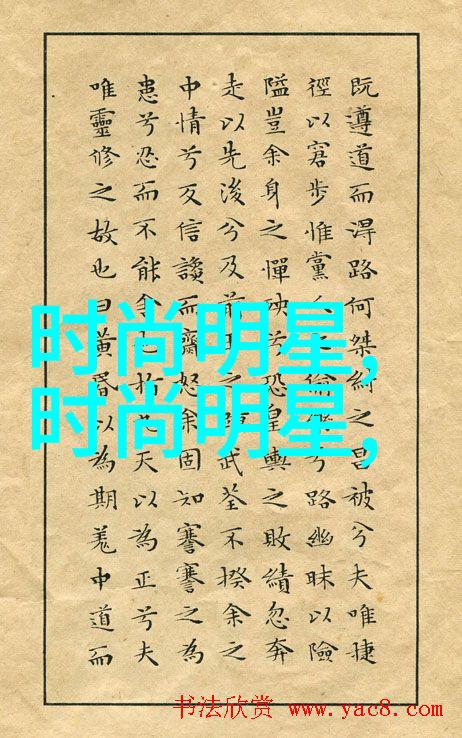 既遵道而淂路何桀紂之昌被兮夫唯捷
徑以窘步惟黨偷兮路幽昧以險
隘豈余身之憚殃兮恐皇輿之敗績忽奔
走以先後兮及前王之武荃不揆余之
中情兮反信讒而齌怒余固知謇謇之為
患兮忍而不能舍也指九天以為正兮夫
唯靈修之故也曰黃昏以為期羌中道而
时尚明星,
时尚明星,
书法欣赏 www.yac8.com